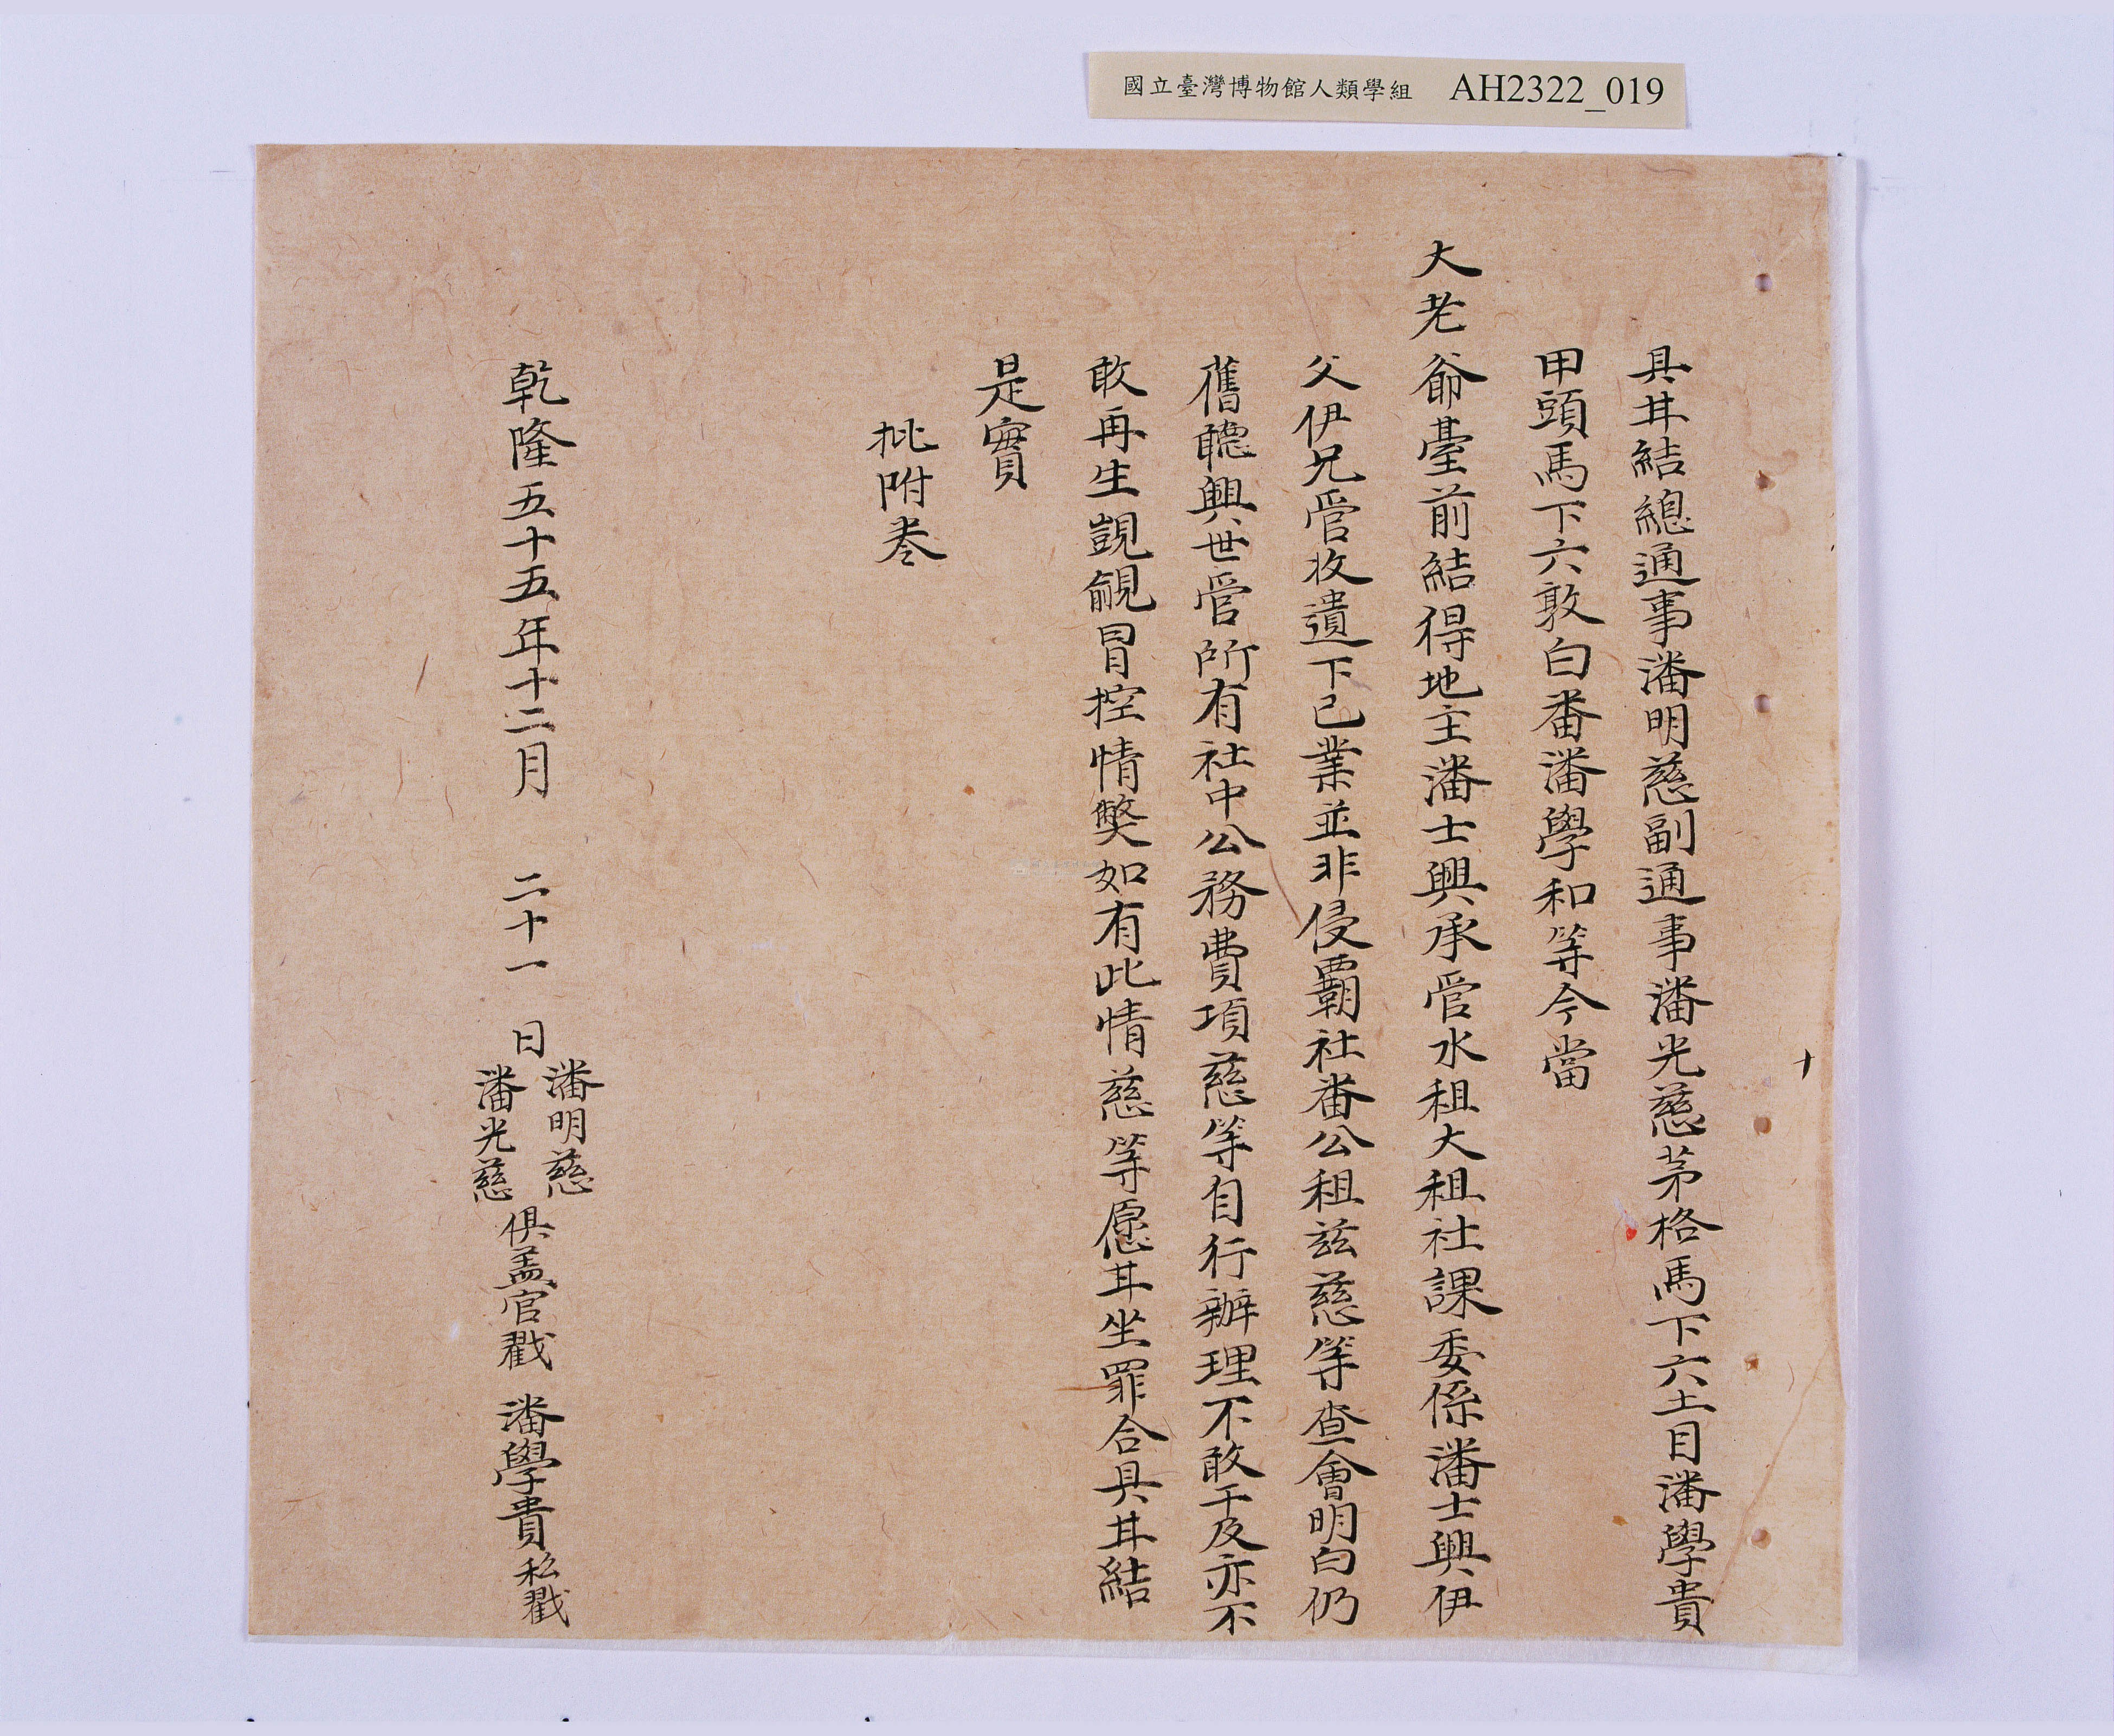 國立臺灣博物館人類學組 AH2322_019
十
具甘結總通事潘明慈副通事潘光慈茅格馬下六土目潘學貴
甲頭馬下六敦白番潘學和等今當
大老爺臺前結得地主潘士興承管水租大租社課委係潘士興伊
父伊兄管收遺下己業並非侵覇社番公租兹慈等查會明白仍
舊聽興世管所有社中公務費項慈等自行辦理不敢干及亦不
敢再生覬覦冒控情獘如有此情慈等愿甘坐罪合具甘結
是實
批附卷
乾隆五十五年十二月 二十一 日
潘明慈
潘光慈
俱盖官戳 潘學貴私戳